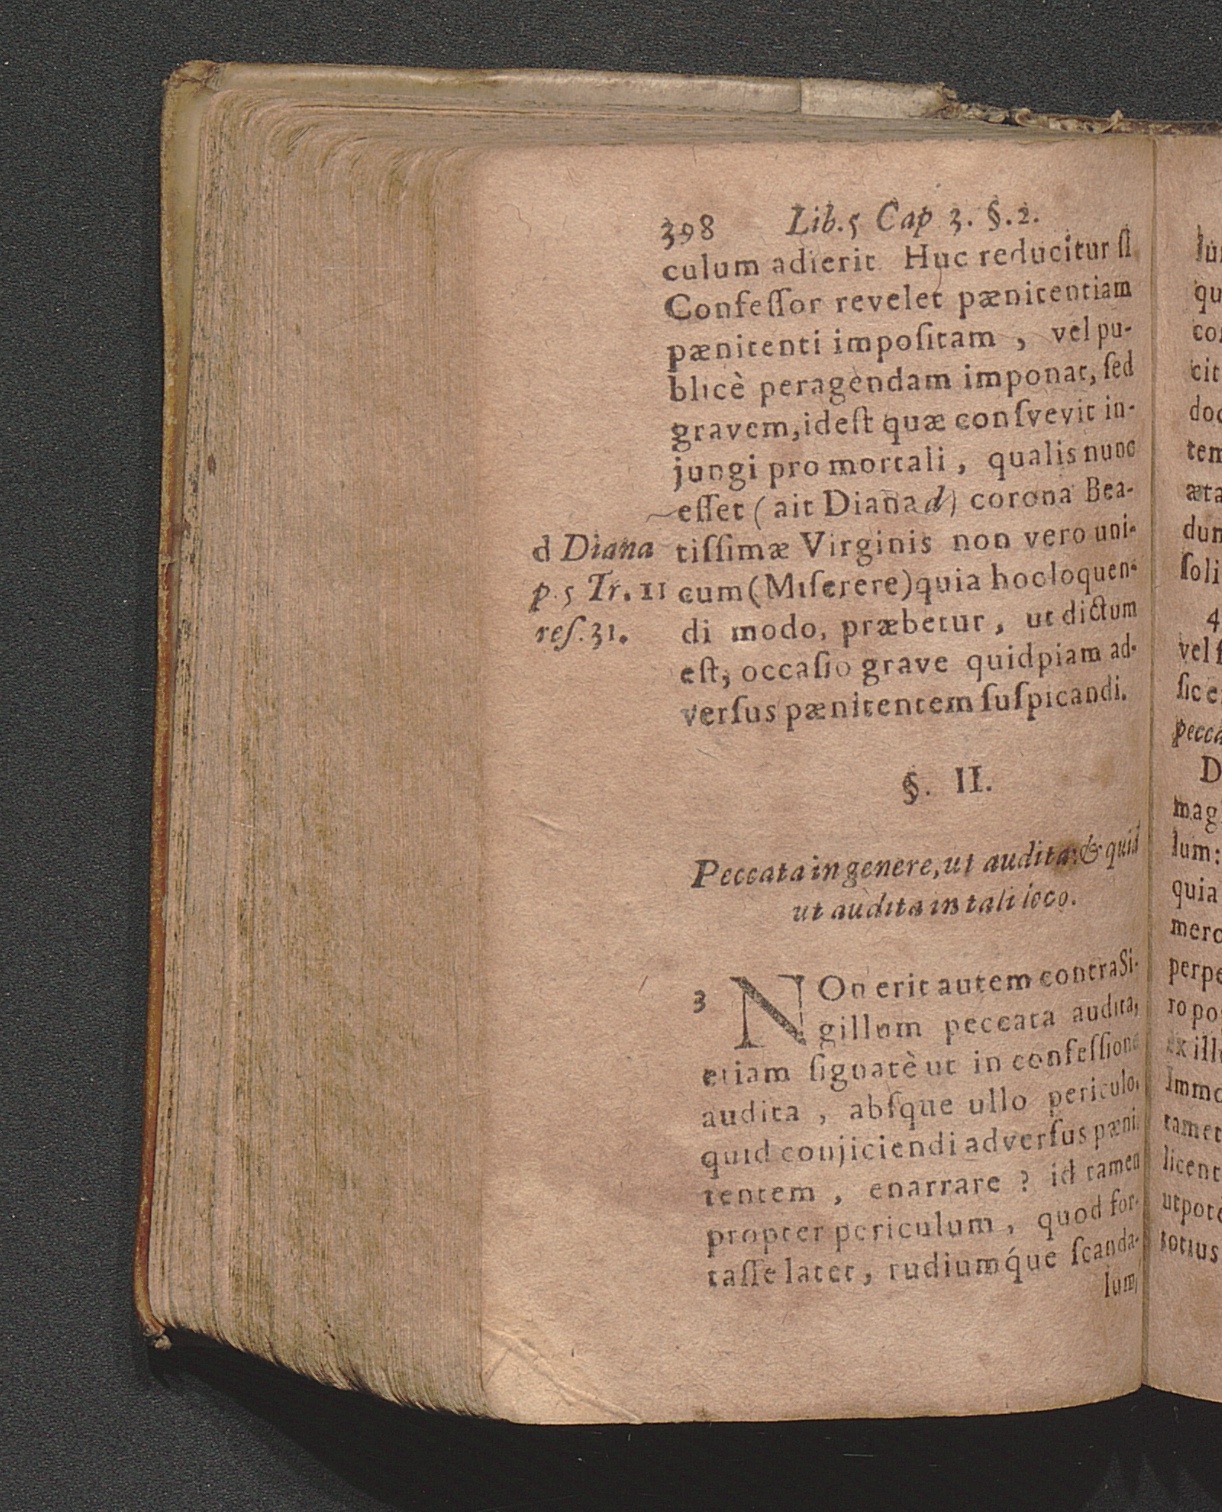 398 Lib. 5 Cap 3. §. 2.
culum adierit Huc reducitur ſi
Confeſſor revelet pænitentiam
pænitenti impoſitam , vel pu-
blicè peragendam imponat, ſed
gravem, ideſt quæ conſvevit in-
jungi pro mortali , qualis nunc
eſſet ( ait Diana d) corona Bea-
tiſſimæ Virginis non vero uni-
cum (Miſerere) quia hoc loquen-
di modo, præbetur , ut dictum
eſt, occaſio grave quidpiam ad-
verſus pænitentem ſuſpicandi.
d Diana
p. 5 Tr. 11
reſ. 31.
§. II.
Peccata in genere, ut audita: & quid
ut audita in tali loco.
3 NOn erit autem contra Si-
gillum peccata audita,
etiam ſignatè ut in confeſſione
audita , abſque ullo periculo,
quid conjiciendi adverſus pæni-
tentem , enarrare ? id tamen
propter periculum , quod for-
taſſe latet , rudiumq́ue ſcanda-
lum,
qu
cit
doc
tem
æta
dun
ſoli
4
vel ſ
ſic e
pecca
D
mag
lum:
quia
mero
perpe
ro po
ex illi
Immo
tamet
licent
utpote
totius